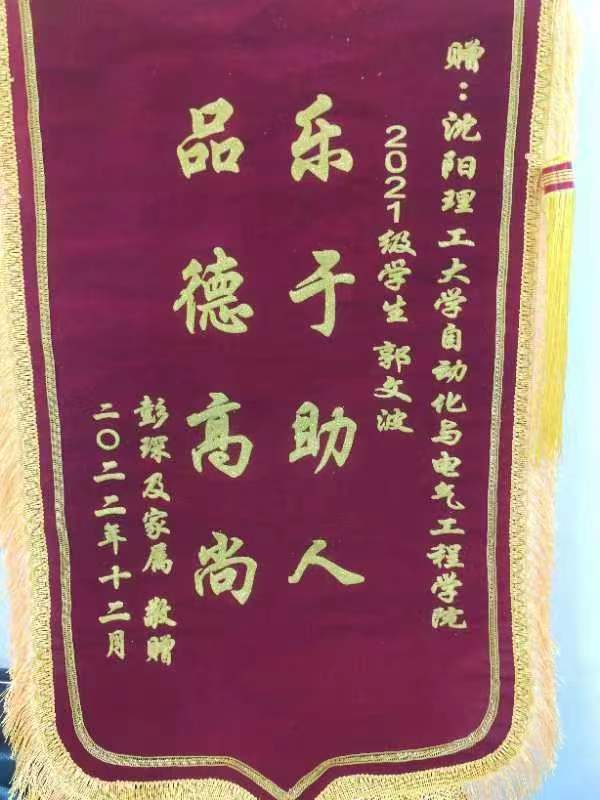 赠：沈阳理工大学自动化与电气工程学院
2021级学生 郭文波
乐于助人
品德高尚
彭琛及家属 敬赠
二〇二二年十二月